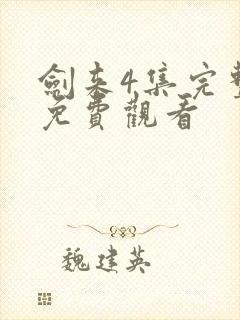 劍来4集完整
免費觀看
魏建英